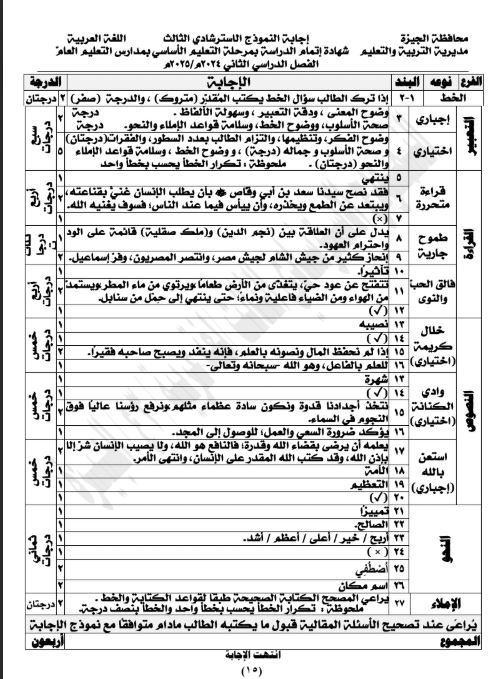 محافظة الجيزة إجابة النموذج الاسترشادي الثالث اللغة العربية
مديرية التربية والتعليم شهادة إتمام الدراسة بمرحلة التعليم الأساسي بمدارس التعليم العام
الفصل الدراسي الثاني ٢٠٢٤م/٢٠٢٥م
الفرع نوعه البند الإجابة الدرجة
الخط ١-٢ إذا ترك الطالب سؤال الخط يكتب المقدّر (متروك) ، والدرجة (صفر) ٢ درجتان
التعبير إجباري ٣ وضوح المعنى ، ودقة التعبير ، وسهولة الألفاظ . درجة
صحة الأسلوب، ووضوح الخط، وسلامة قواعد الإملاء والنحو. درجة
سبع درجات
اختياري ٤ وضوح الفكر، وتنظيمها، والتزام الطالب بعدد السطور، والفقرات(درجتان)
و صحة الأسلوب و جماله (درجة) ، و وضوح الخط ، وسلامة قواعد الإملاء
والنحو (درجتان) . ملحوظة : تكرار الخطأ يحسب بخطأ واحد
القراءة قراءة متحررة ٥ ينتهي ١ أربع درجات
٦ فقد نصح سيدنا سعد بن أبي وقاص ﷺ بأن يطلب الإنسان غنىً بقناعته،
ويبتعد عن الطمع ويحذره، وأن ييأس فيما عند الناس؛ فسوف يغنيه الله. ٢
٧ (×) ١
طموح جارية ٨ يدل على أن العلاقة بين (نجم الدين) و(ملك صقلية) قائمة على الود
واحترام العهود.
٩ إنحاز كثير من جيش الشام لجيش مصر، وانتصر المصريون، وفر إسماعيل.
فالق الحب والنوى ١٠ تأثيرًا. ١ أربع درجات
١١ تتفتح عن عود حيّ، يتغذى من الأرض طعاما،ويرتوي من ماء المطر،ويستمد
من الهواء ومن الضياء فاعلية ونماءً؛ حتى ينتهي إلى حمل من سنابل. ٢
١٢ (√) ١
النصوص خلال كريمة (اختياري) ١٣ نصيبه ١ خمس درجات
١٤ (√) ١
١٥ إذا لم نحفظ المال ونصونه بالعلم، فإنه ينفد ويصبح صاحبه فقيرًا. ٢
١٦ للعلم بالفاعل، وهو الله -سبحانه وتعالى- ١
وادي الكنانة (اختياري) ١٣ شهرة ١ خمس درجات
١٤ (√) ١
١٥ نتخذ أجدادنا قدوة ونكون سادة عظماء مثلهم،ونرفع رؤسنا عاليًا فوق
النجوم في السماء. ٢
١٦ يؤكد ضرورة السعي والعمل؛ للوصول إلى المجد. ١
استعن بالله (إجباري) ١٧ يعلمه أن يرضى بقضاء الله وقدرة؛ فالنافع هو الله، ولا يصيب الإنسان شرّ إلا
بإذن الله، وقد كتب الله المقدر على الإنسان، وانتهى الأمر. ٢ خمس درجات
١٨ الأمة ١
١٩ التعظيم ١
٢٠ (√) ١
النحو ٢١ تمييزًا ١ ثماني درجات
٢٢ الصالح.
٢٣ أربح / خير / أعلى / أعظم / أشد. ١
٢٤ (×) ١
٢٥ أصْطُفِي ٢
٢٦ اسم مكان ٢
الإملاء ٢٧ يراعي المصحح الكتابة الصحيحة طبقًا لقواعد الكتابة والخط .
ملحوظة : تكرار الخطأ يحسب بخطأ واحد والخطأ بنصف درجة. ٢ درجتان
يُراعى عند تصحيح الأسئلة المقالية قبول ما يكتبه الطالب مادام متوافقًا مع نموذج الإجابة
المجموع أربعون
انتهت الإجابة
(١٥)